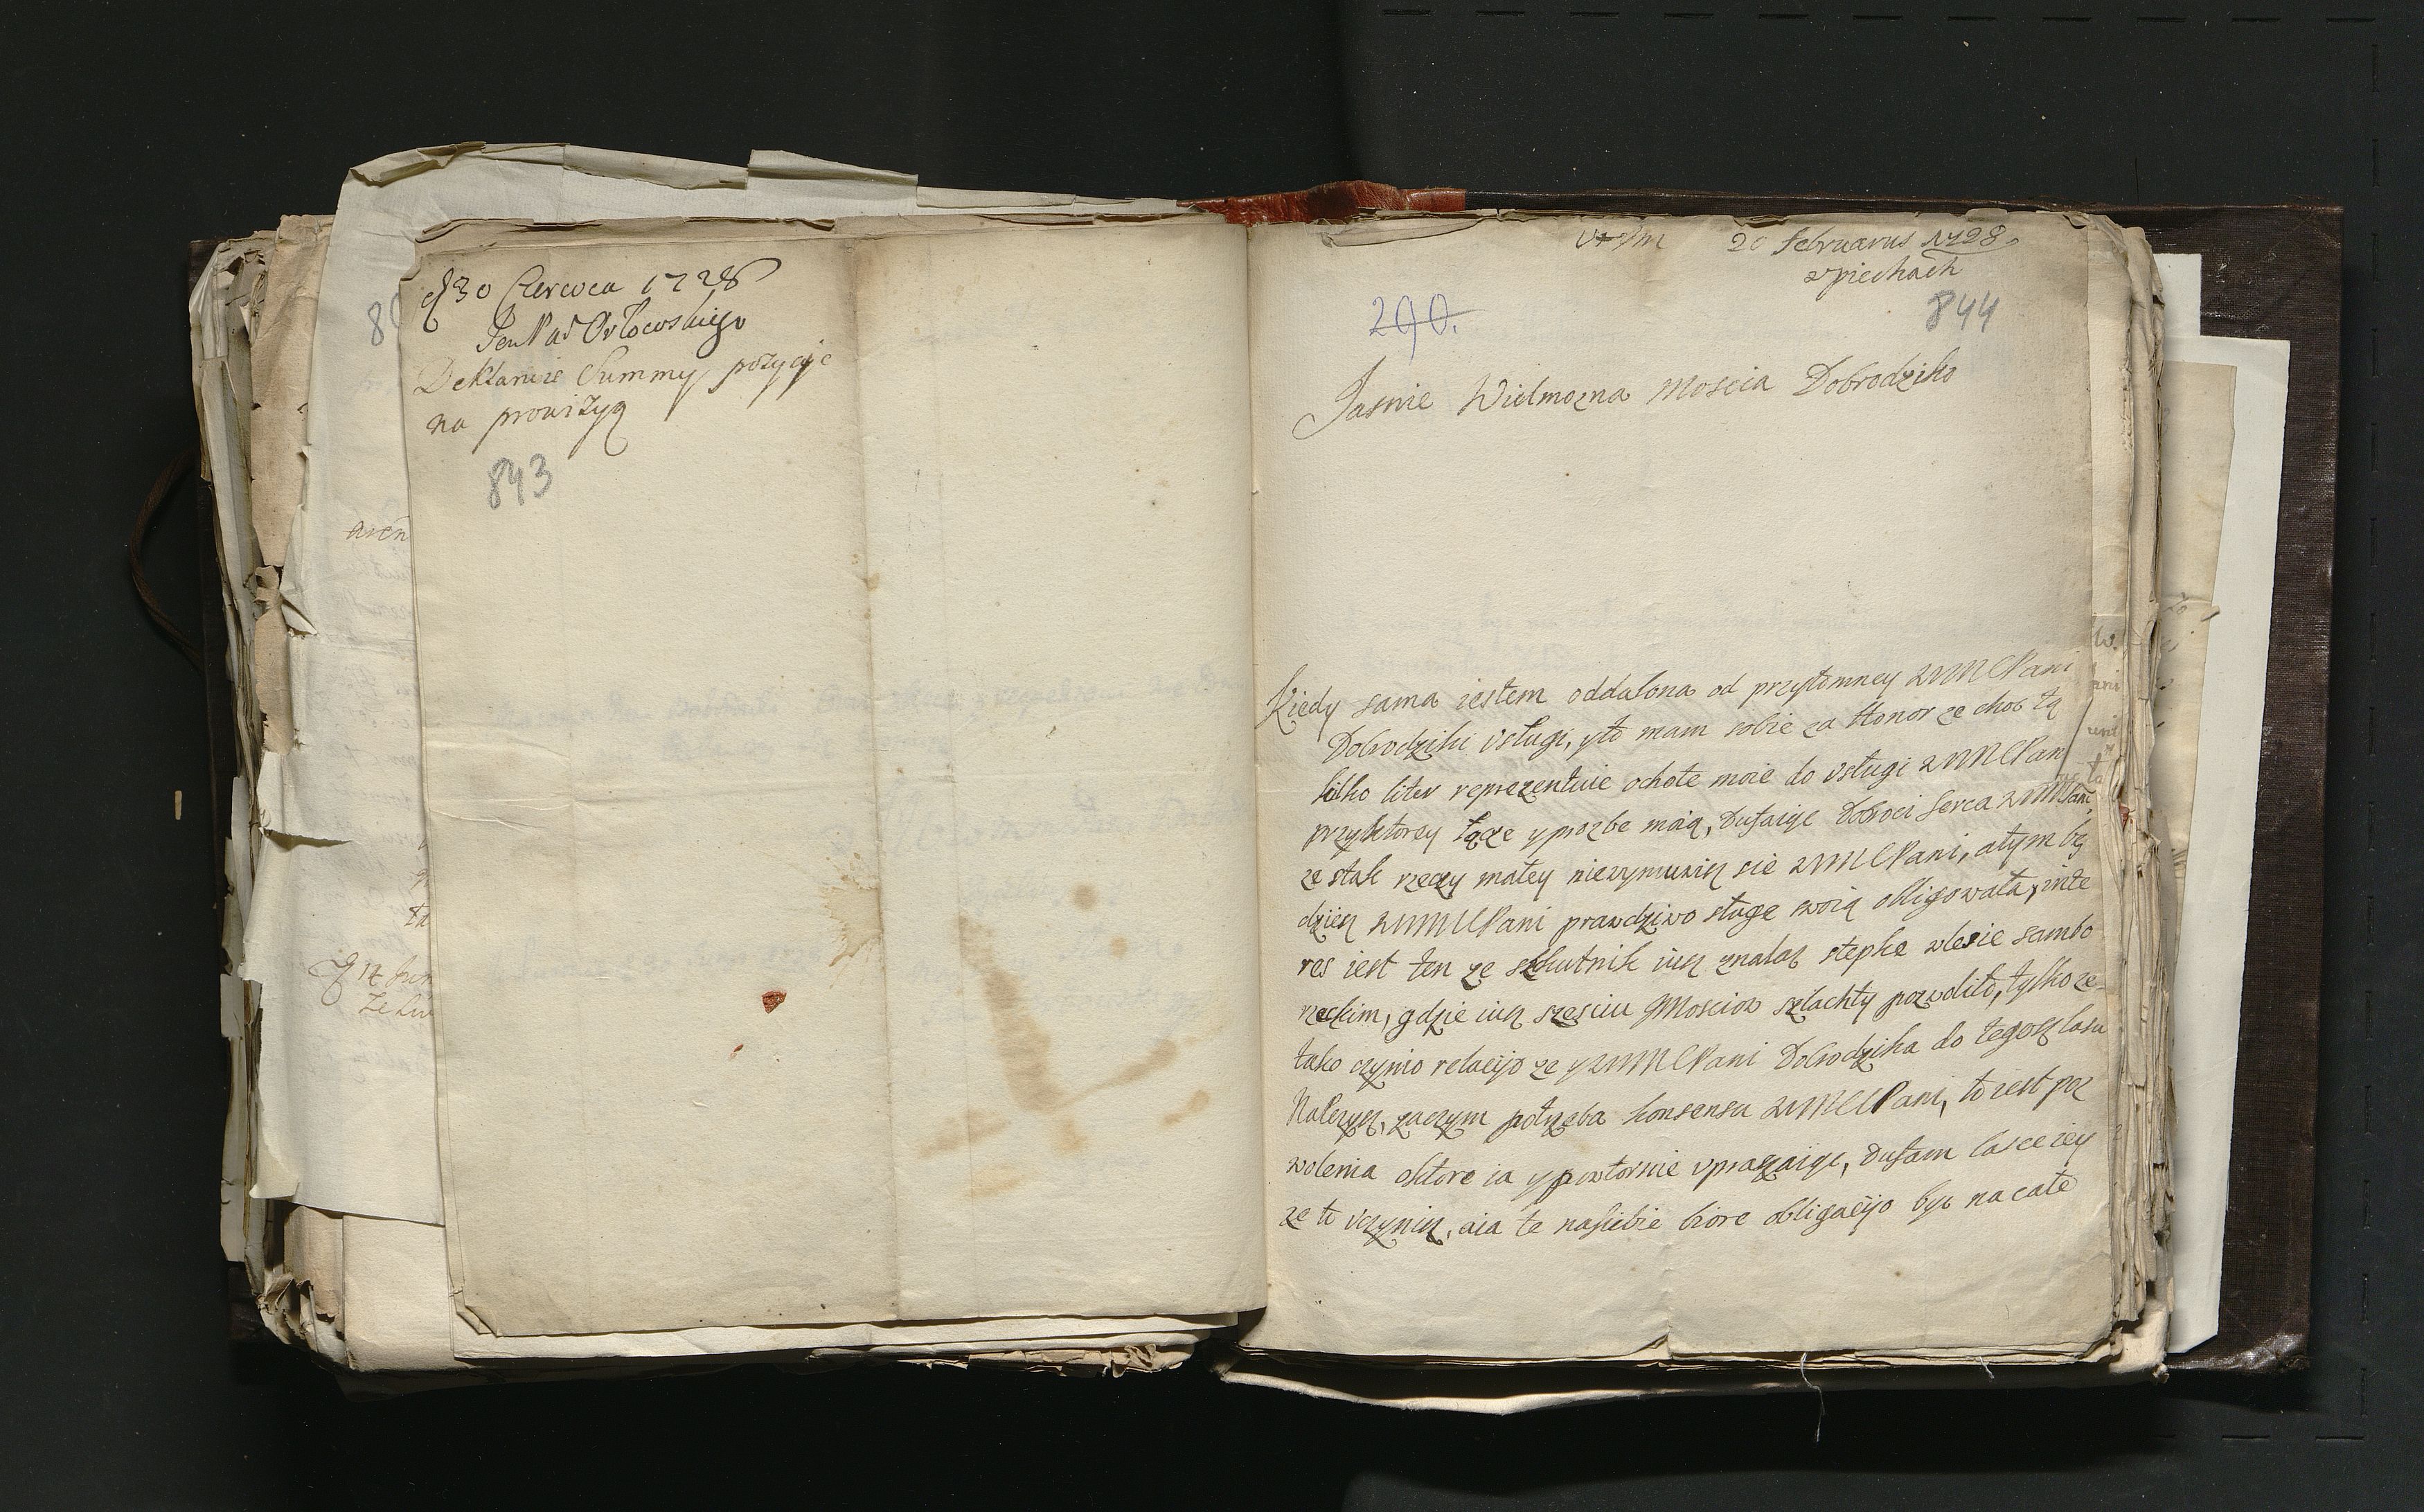 d 30 Czerwca 1728
Orłowskiego
Deklaruie Summy pozycyie
na prowizyą
843
aren
20 februarus 1728
zpiechach
290.
844
Jasnie Wielmozna Moscia Dobrodziko
Kiedy sama iestem oddalona od przytomney WMMCPani
Dobrodziki vsługi, yto mam sobie za Honor ze choc tą
kilko liter reprezentuie ochote moie do vsługi WMMCPani
przyktorey tęze yprozbe maią, Dufaiąc Dobroci serca WMMPani
ze stak rzeczy małey niewymuwisz sie WMMCPani, atym bę
dziesz WMMCPani prawdziwo sługe swoią obligowała, inte
res iest ten ze szkutnik iusz znalaz stepke wlesie sambo
rzeckim, gdzie iusz szesciu Mosciow szlachty pozwoliło, tylko ze
tako czynio relacijo ze y WMMCPani Dobrodzika do tegosz lasu
Nalezysz, zaczym potrzeba konsensu WMMCPani, to iest poz
wolenia oktore ia ypowtornie vpraszaiąc, Dufam łasce iey
ze to vczynisz, aia te nasiebie biore obligacijo byc nacałe